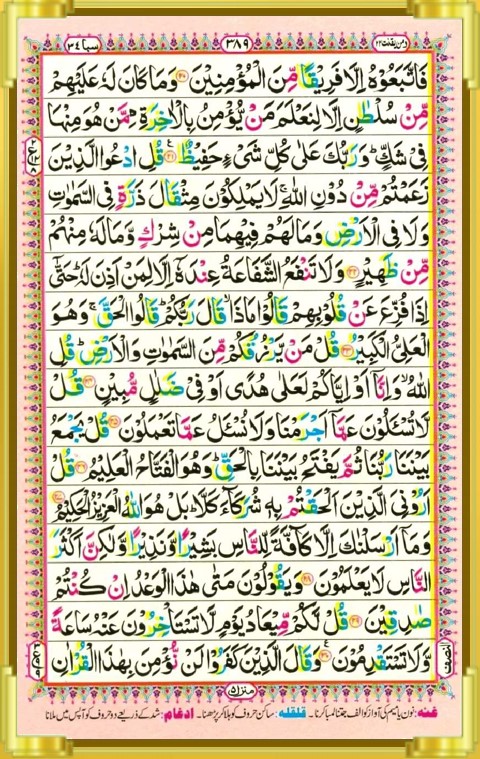 ومن يقنت ٢٢
٣٨٩
سبا ٣٤
فَاتَّبَعُوْهُ اِلَّا فَرِيْقًا مِّنَ الْمُؤْمِنِيْنَ ﴿۲۰﴾ وَمَا كَانَ لَهٗ عَلَيْهِمْ
مِّنْ سُلْطٰنٍ اِلَّا لِنَعْلَمَ مَنْ يُّؤْمِنُ بِالْاٰخِرَةِ مِمَّنْ هُوَ مِنْهَا
فِيْ شَكٍّ ؕ وَرَبُّكَ عَلٰى كُلِّ شَيْءٍ حَفِيْظٌ ﴿۲۱﴾ قُلِ ادْعُوا الَّذِيْنَ
زَعَمْتُمْ مِّنْ دُوْنِ اللّٰهِ ۚ لَا يَمْلِكُوْنَ مِثْقَالَ ذَرَّةٍ فِي السَّمٰوٰتِ
وَلَا فِي الْاَرْضِ وَمَا لَهُمْ فِيْهِمَا مِنْ شِرْكٍ وَّمَا لَهٗ مِنْهُمْ
مِّنْ ظَهِيْرٍ ﴿۲۲﴾ وَلَا تَنْفَعُ الشَّفَاعَةُ عِنْدَهٗۤ اِلَّا لِمَنْ اَذِنَ لَهٗ ؕ حَتّٰۤى
اِذَا فُزِّعَ عَنْ قُلُوْبِهِمْ قَالُوْا مَاذَا ۙ قَالَ رَبُّكُمْ ؕ قَالُوا الْحَقَّ ۚ وَهُوَ
الْعَلِيُّ الْكَبِيْرُ ﴿۲۳﴾ قُلْ مَنْ يَّرْزُقُكُمْ مِّنَ السَّمٰوٰتِ وَالْاَرْضِ ؕ قُلِ
اللّٰهُ ۙ وَاِنَّاۤ اَوْ اِيَّاكُمْ لَعَلٰى هُدًى اَوْ فِيْ ضَلٰلٍ مُّبِيْنٍ ﴿۲۴﴾ قُلْ
لَّا تُسْـَٔلُوْنَ عَمَّاۤ اَجْرَمْنَا وَلَا نُسْـَٔلُ عَمَّا تَعْمَلُوْنَ ﴿۲۵﴾ قُلْ يَجْمَعُ
بَيْنَنَا رَبُّنَا ثُمَّ يَفْتَحُ بَيْنَنَا بِالْحَقِّ ؕ وَهُوَ الْفَتَّاحُ الْعَلِيْمُ ﴿۲۶﴾ قُلْ
اَرُوْنِيَ الَّذِيْنَ اَلْحَقْتُمْ بِهٖ شُرَكَآءَ كَلَّا ؕ بَلْ هُوَ اللّٰهُ الْعَزِيْزُ الْحَكِيْمُ ﴿۲۷﴾
وَمَاۤ اَرْسَلْنٰكَ اِلَّا كَآفَّةً لِّلنَّاسِ بَشِيْرًا وَّنَذِيْرًا وَّلٰكِنَّ اَكْثَرَ
النَّاسِ لَا يَعْلَمُوْنَ ﴿۲۸﴾ وَيَقُوْلُوْنَ مَتٰى هٰذَا الْوَعْدُ اِنْ كُنْتُمْ
صٰدِقِيْنَ ﴿۲۹﴾ قُلْ لَّكُمْ مِّيْعَادُ يَوْمٍ لَّا تَسْتَاْخِرُوْنَ عَنْهُ سَاعَةً
وَّلَا تَسْتَقْدِمُوْنَ ﴿۳۰﴾ وَقَالَ الَّذِيْنَ كَفَرُوْا لَنْ نُّؤْمِنَ بِهٰذَا الْقُرْاٰنِ
منزل ٥
غنه: نون یا میم کی آواز کو الف جتنا لمبا کرنا۔ قلقله: ساکن حروف کو ہلا کر پڑھنا۔ ادغام: شد کے ذریعے دو حروف کو آپس میں ملانا